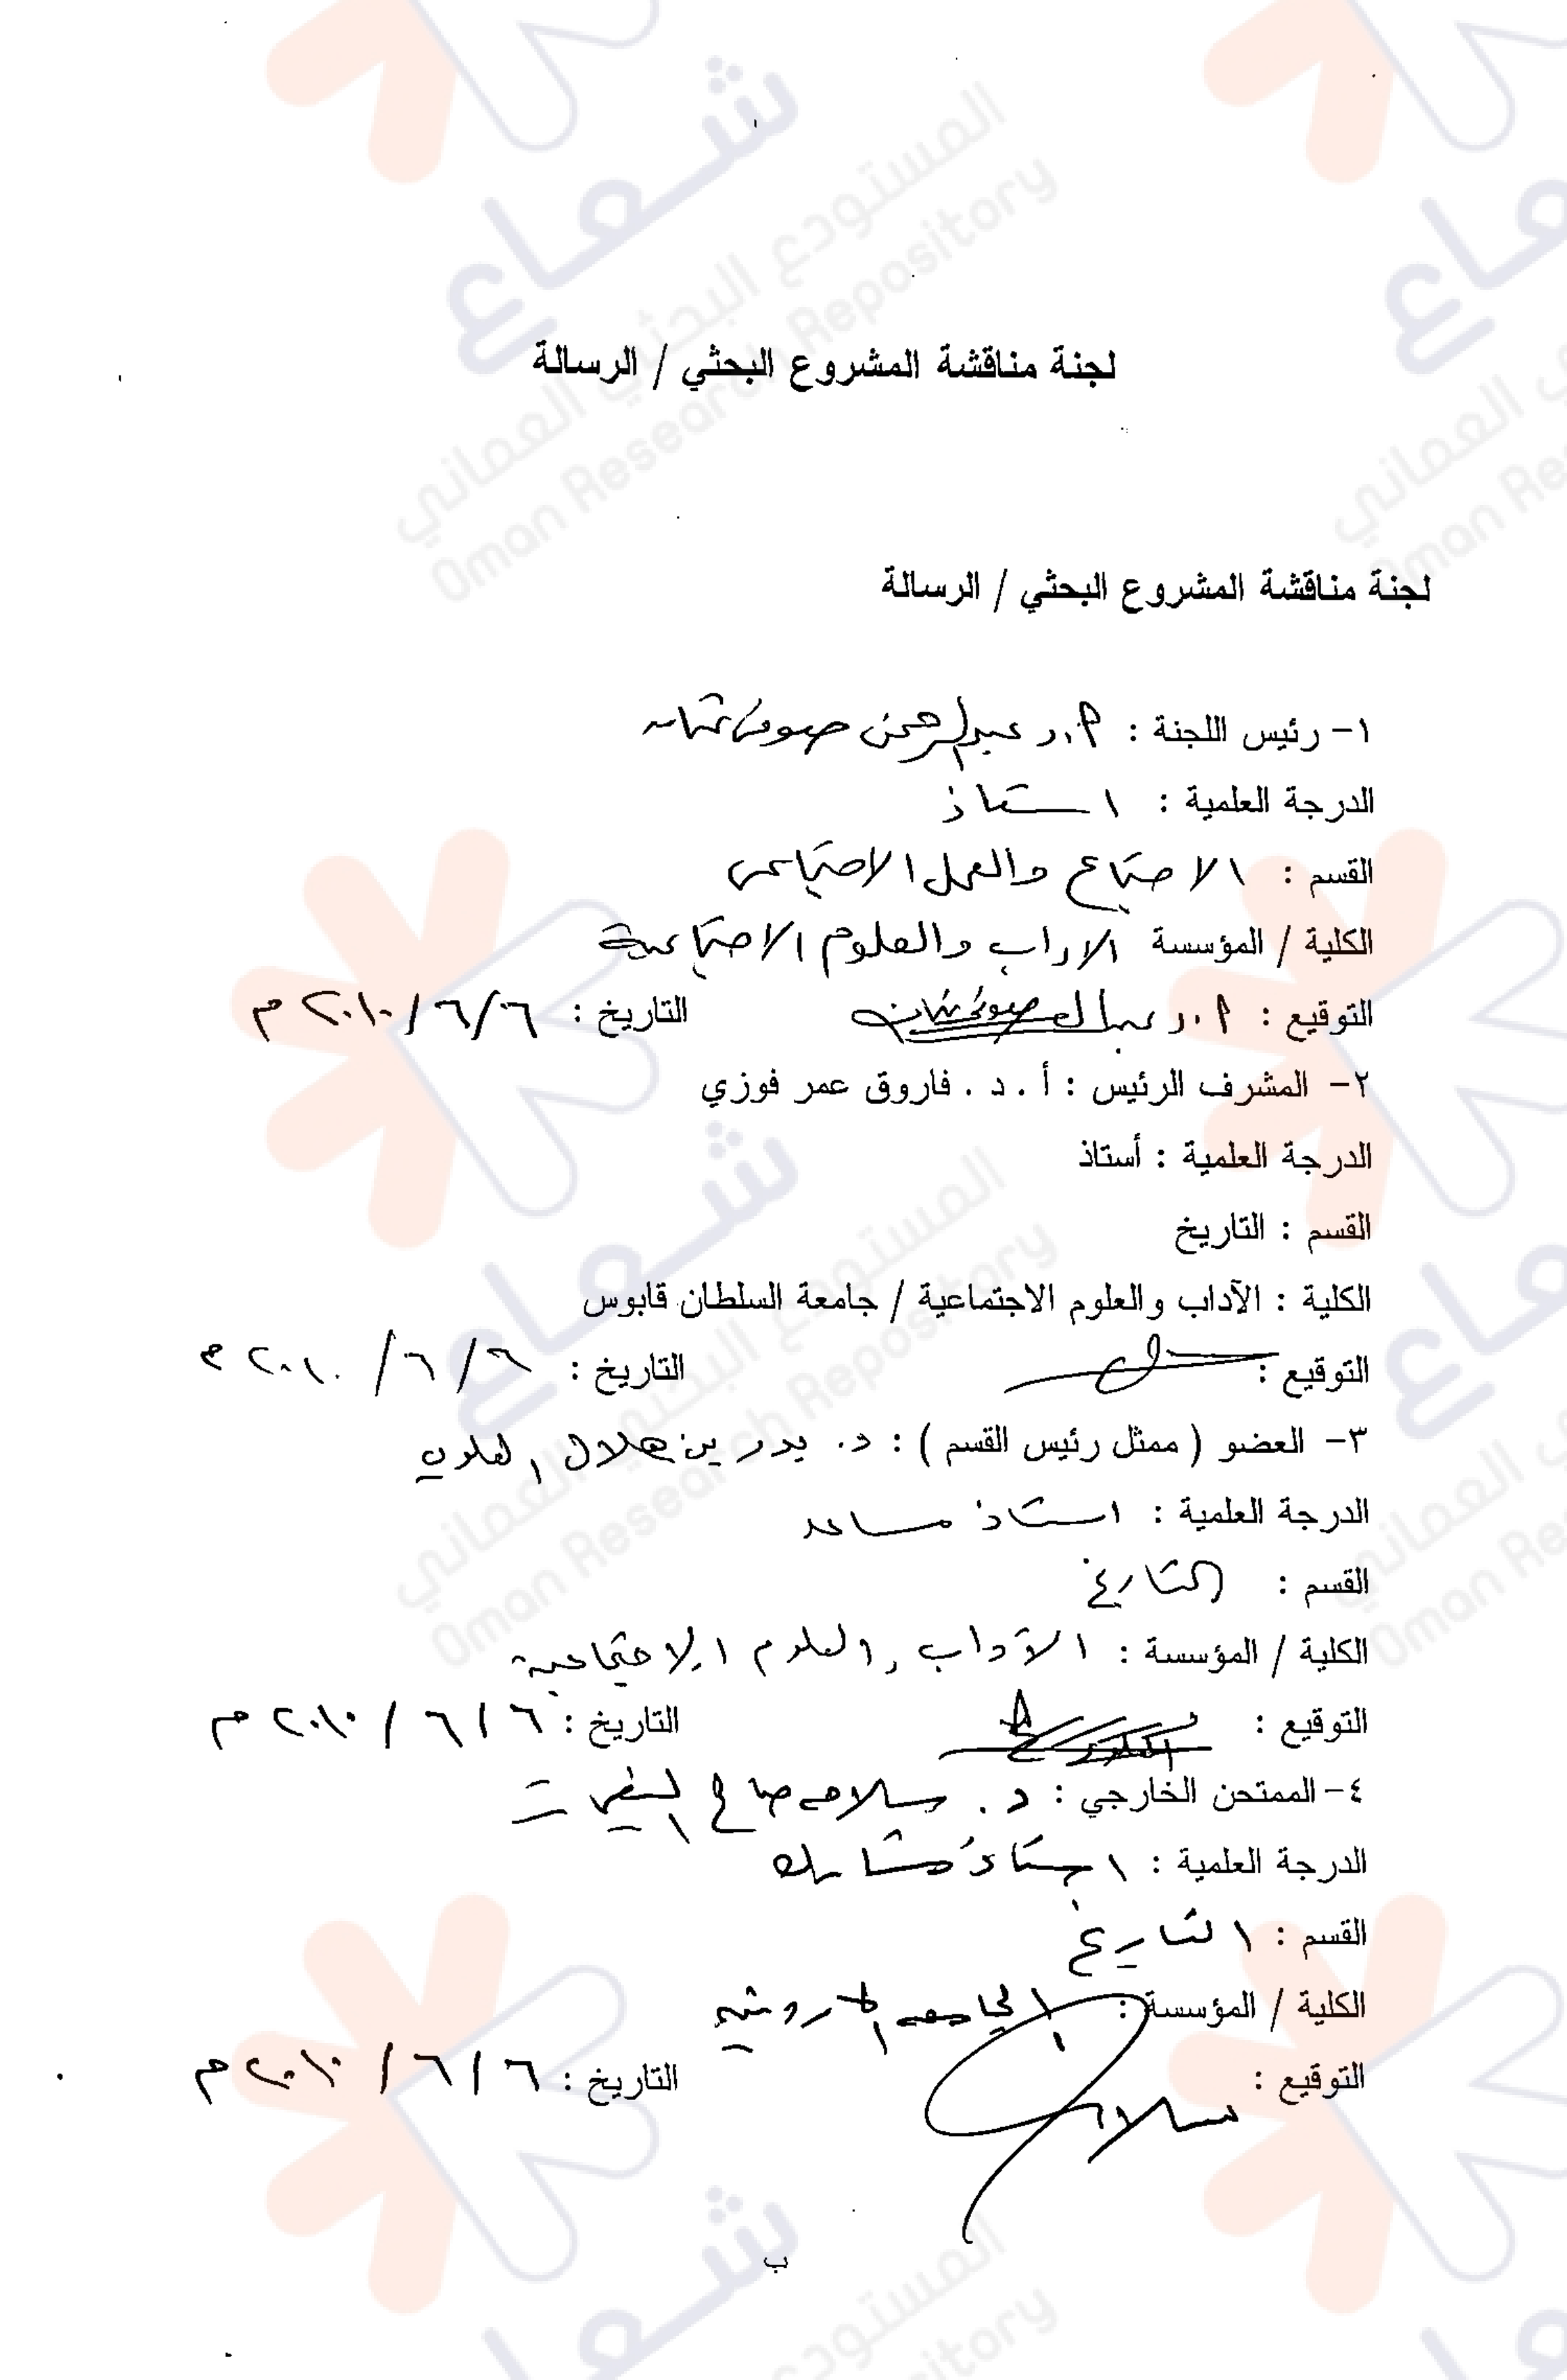 لجنة مناقشة المشروع البحثي / الرسالة
لجنة مناقشة المشروع البحثي / الرسالة
١- رئيس اللجنة : أ.د عبدالرحمن صوفي عثمان
الدرجة العلمية : استاذ
القسم : الاجتماع والعمل الاجتماعي
الكلية / المؤسسة الاداب والعلوم الاجتماعية
التوقيع : أ.د عبدالرحمن صوفي عثمان التاريخ : ٦/٦/٢٠١٠ م
٢- المشرف الرئيس : أ . د . فاروق عمر فوزي
الدرجة العلمية : أستاذ
القسم : التاريخ
الكلية : الآداب والعلوم الاجتماعية / جامعة السلطان قابوس
التوقيع : التاريخ : ٦/٦/٢٠١٠ م
٣- العضو ( ممثل رئيس القسم ) : د. بدر بن هلال العلوي
الدرجة العلمية : استاذ مساعد
القسم : التاريخ
الكلية / المؤسسة : الآداب والعلوم الاجتماعية
التوقيع : التاريخ : ٦/٦/٢٠١٠ م
٤- الممتحن الخارجي : د. سلامه صالح
الدرجة العلمية : استاذ مشارك
القسم : التاريخ
الكلية / المؤسسة : الجامعه الاردنيه
التوقيع : التاريخ : ٦/٦/٢٠١٠ م
ب
شعاع
المستودع البحثي العماني
Oman Research Repository